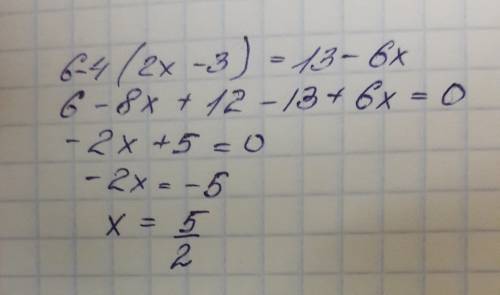 6-4(2x-3) = 13-6x
6-8x+12-13+6x=0
-2x+5=0
-2x=-5
x = 5/2